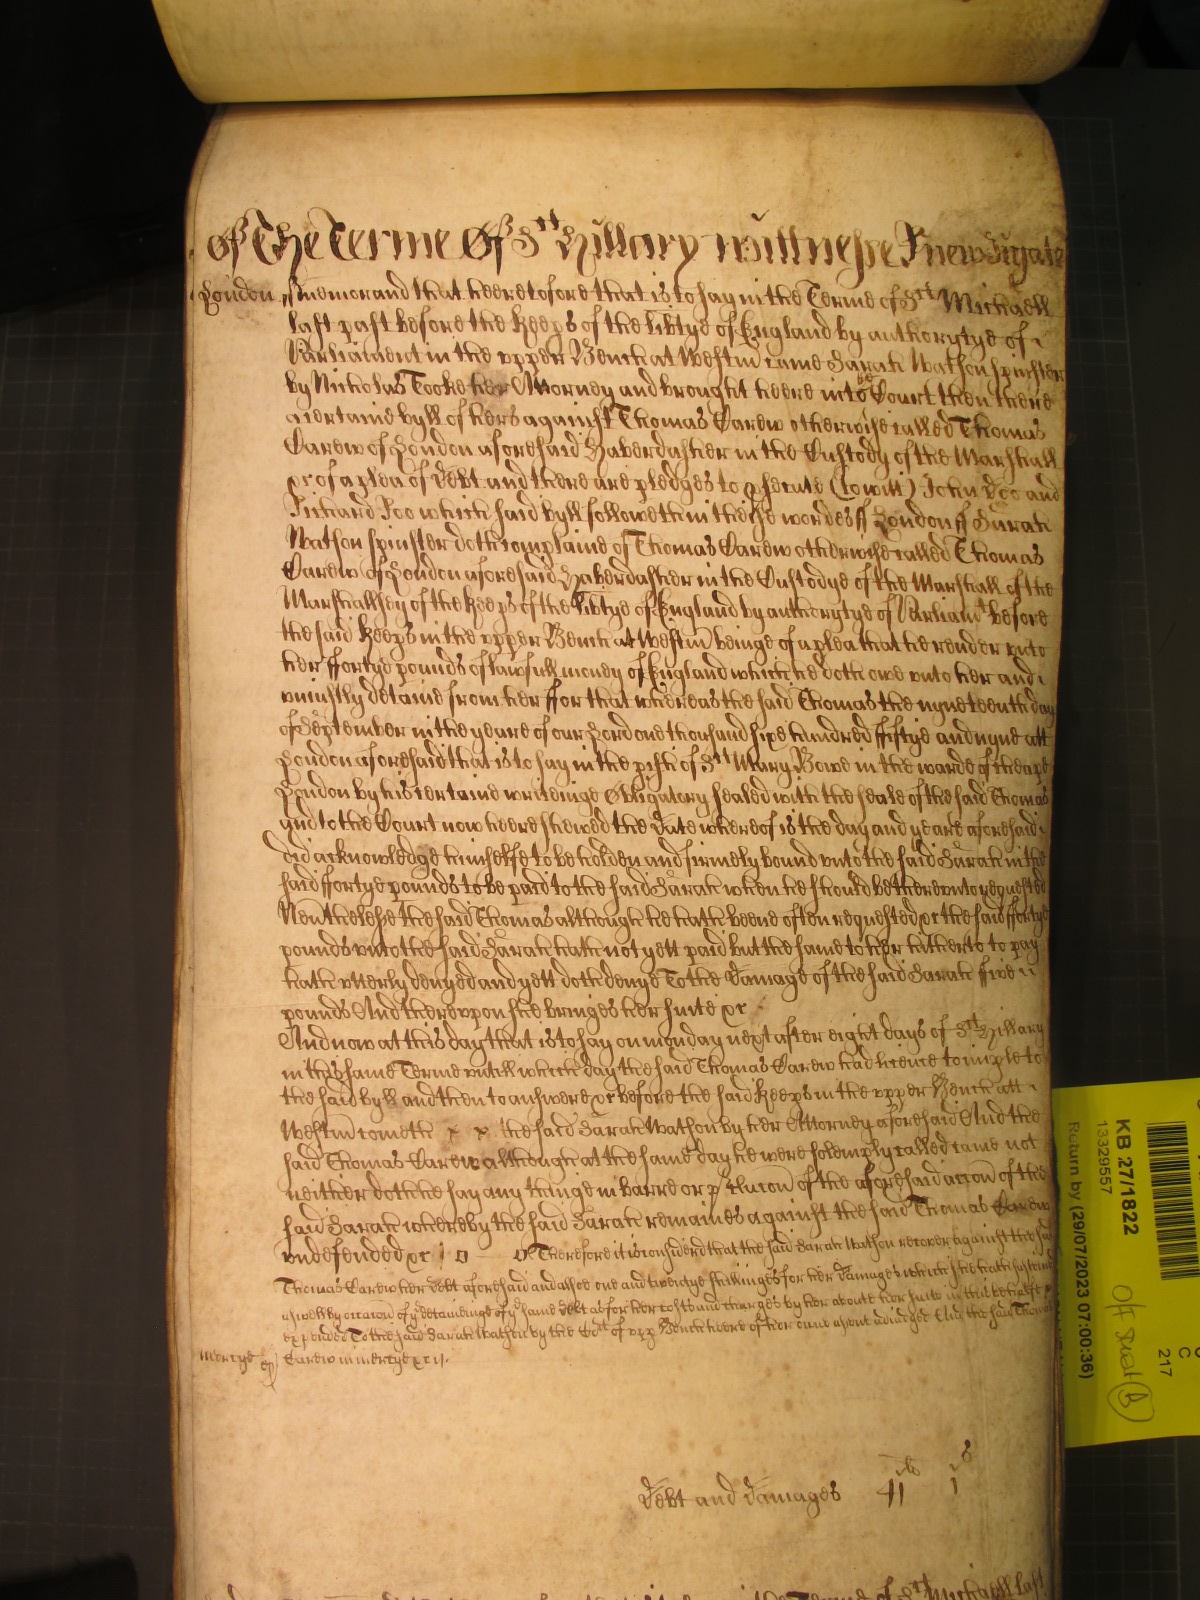 Of The Terme Of St Hillary wittnesse R newdigate
London ss memorand that heeretofore that is to say in the Terme of St Michaell
last past before the Keeps of the libtye of England by authorytye of
Parliament in the vpper Bench at Westm came Sarah Watson spinster
by Nicholas Tooke her Attorney and brought heere into the Court then there
a certaine byll of hers against Thomas Carew otherwise called Thomas
Carew of London aforesaid Haberdasher in the Custody of the Marshall
&c of a plea of Debt and there are pledges to psecute (to witt) John Doo and
Richard Roo which said byll followeth in theise wordes ss London ss Sarah
Watson spinster doth complaine of Thomas Carew otherwise called Thomas
Carew of London aforesaid Haberdasher in the Custodye of the Marshall of the
Marshallsey of the Keeps of the libtye of England by authorytye of Parliamt before
the said Keeps in the vpper Bench at Westm beinge of a plea that he render vnto
her ffortye pounds of lawfull money of England which he doth owe vnto her and
vniustly detaine from her ffor that whereas the said Thomas the nyneteenth day
of September in the yeare of our Lord one thousand sixe hundred fiftye and nyne att
London aforesaid that is to say in the pish of St Mary Bowe in the warde of Cheape
London by his certaine writeinge Obligatory sealed with the seale of the said Thomas
and to the Court now heere shewed the Date whereof is the day and yeare aforesaid
did acknowledge himselfe to be holden and firmely bound vnto the said Sarah in the
said ffortye pounds to be paid to the said Sarah when he should be therevnto requested
Neuthelesse the said Thomas although he hath beene often requested &c the said ffortye
pounds vnto the said Sarah hath not yett paid but the same to her hitherto to pay
hath vtterly denyed and yett doth denye To the Damage of the said Sarah ffive
pounds And therevpon shee bringes her suite &c
And now at this day that is to say on monday next after eight days of St Hillary
in this same Terme vntill which day the said Thomas Carew had licence to imple to
the said byll and then to answere &c before the said Keeps in the vpper Bench att
Westm cometh x x the said Sarah Watson by her Attorney aforesaid And the
said Thomas Carew although at the same day he were solemply called came not
neither doth he say any thinge in barre or pclucon of the aforesaid accon of the
said Sarah whereby the said Sarah remaines against the said Thomas Carew
vndefended &c Therefore it is considerd that the said Sarah Watson recover against the said
Thomas Carew her Debt aforesaid and allsoe one and twentye shillinges for her Damages which shee hath susteind
aswell by occasion of ye detaineinge of ye same Debt as for her costs and charges by her about her suite in this behalfe
expended To the said Sarah Watson by the Court of vpp Bench heere of her owne assent adiudged And the said Thomas
mercye Carew in mercye &c
Debt and Damages 41 li 1 s
KB 27/1822
13329557
Return by (29/07/2023 07:00:36)
C
217